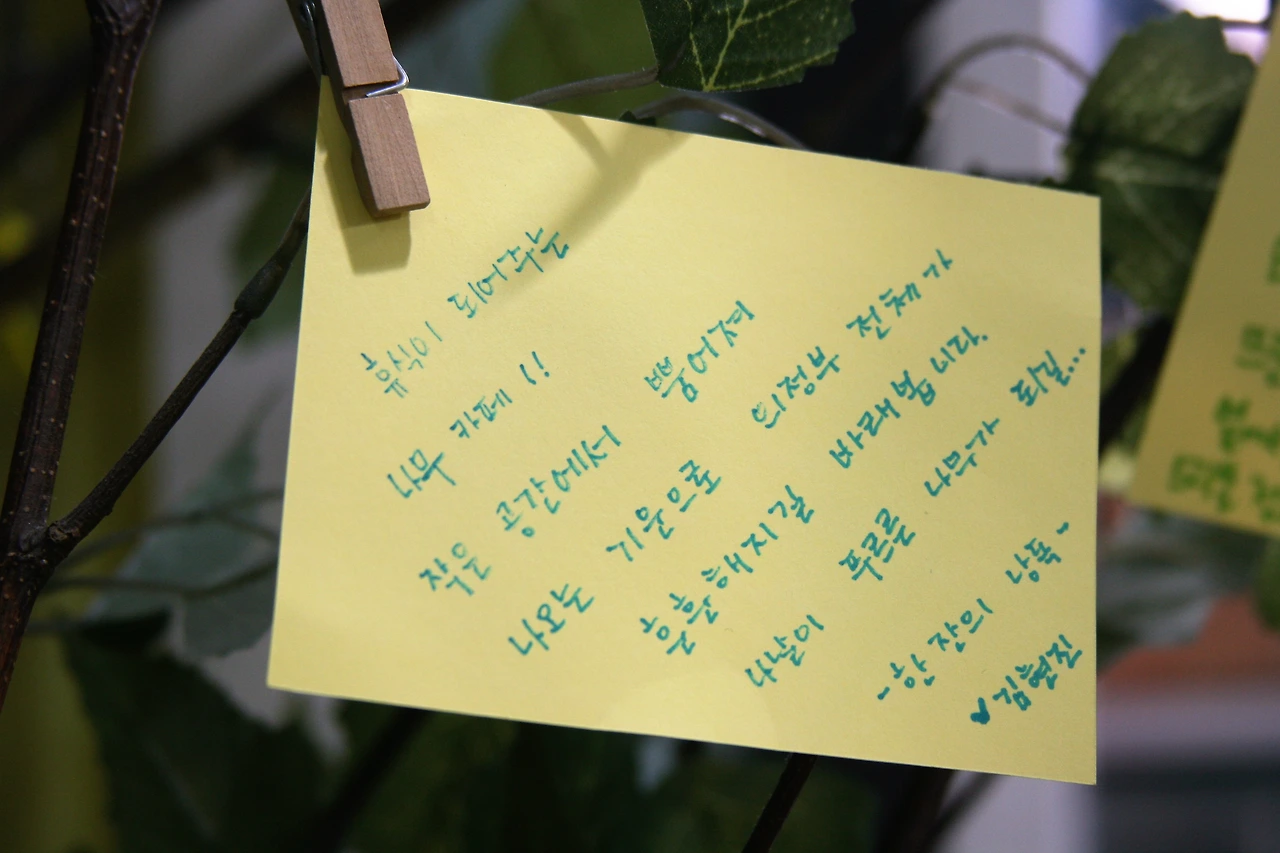 휴식이 되어주는
나무 카페!!
작은 공간에서 뿜어져
나오는 기운으로 의정부 전체가
훈훈해지길 바래봅니다.
나날이 푸르른 나무가 되길...
-한 잔의 낭독-
♥김현진